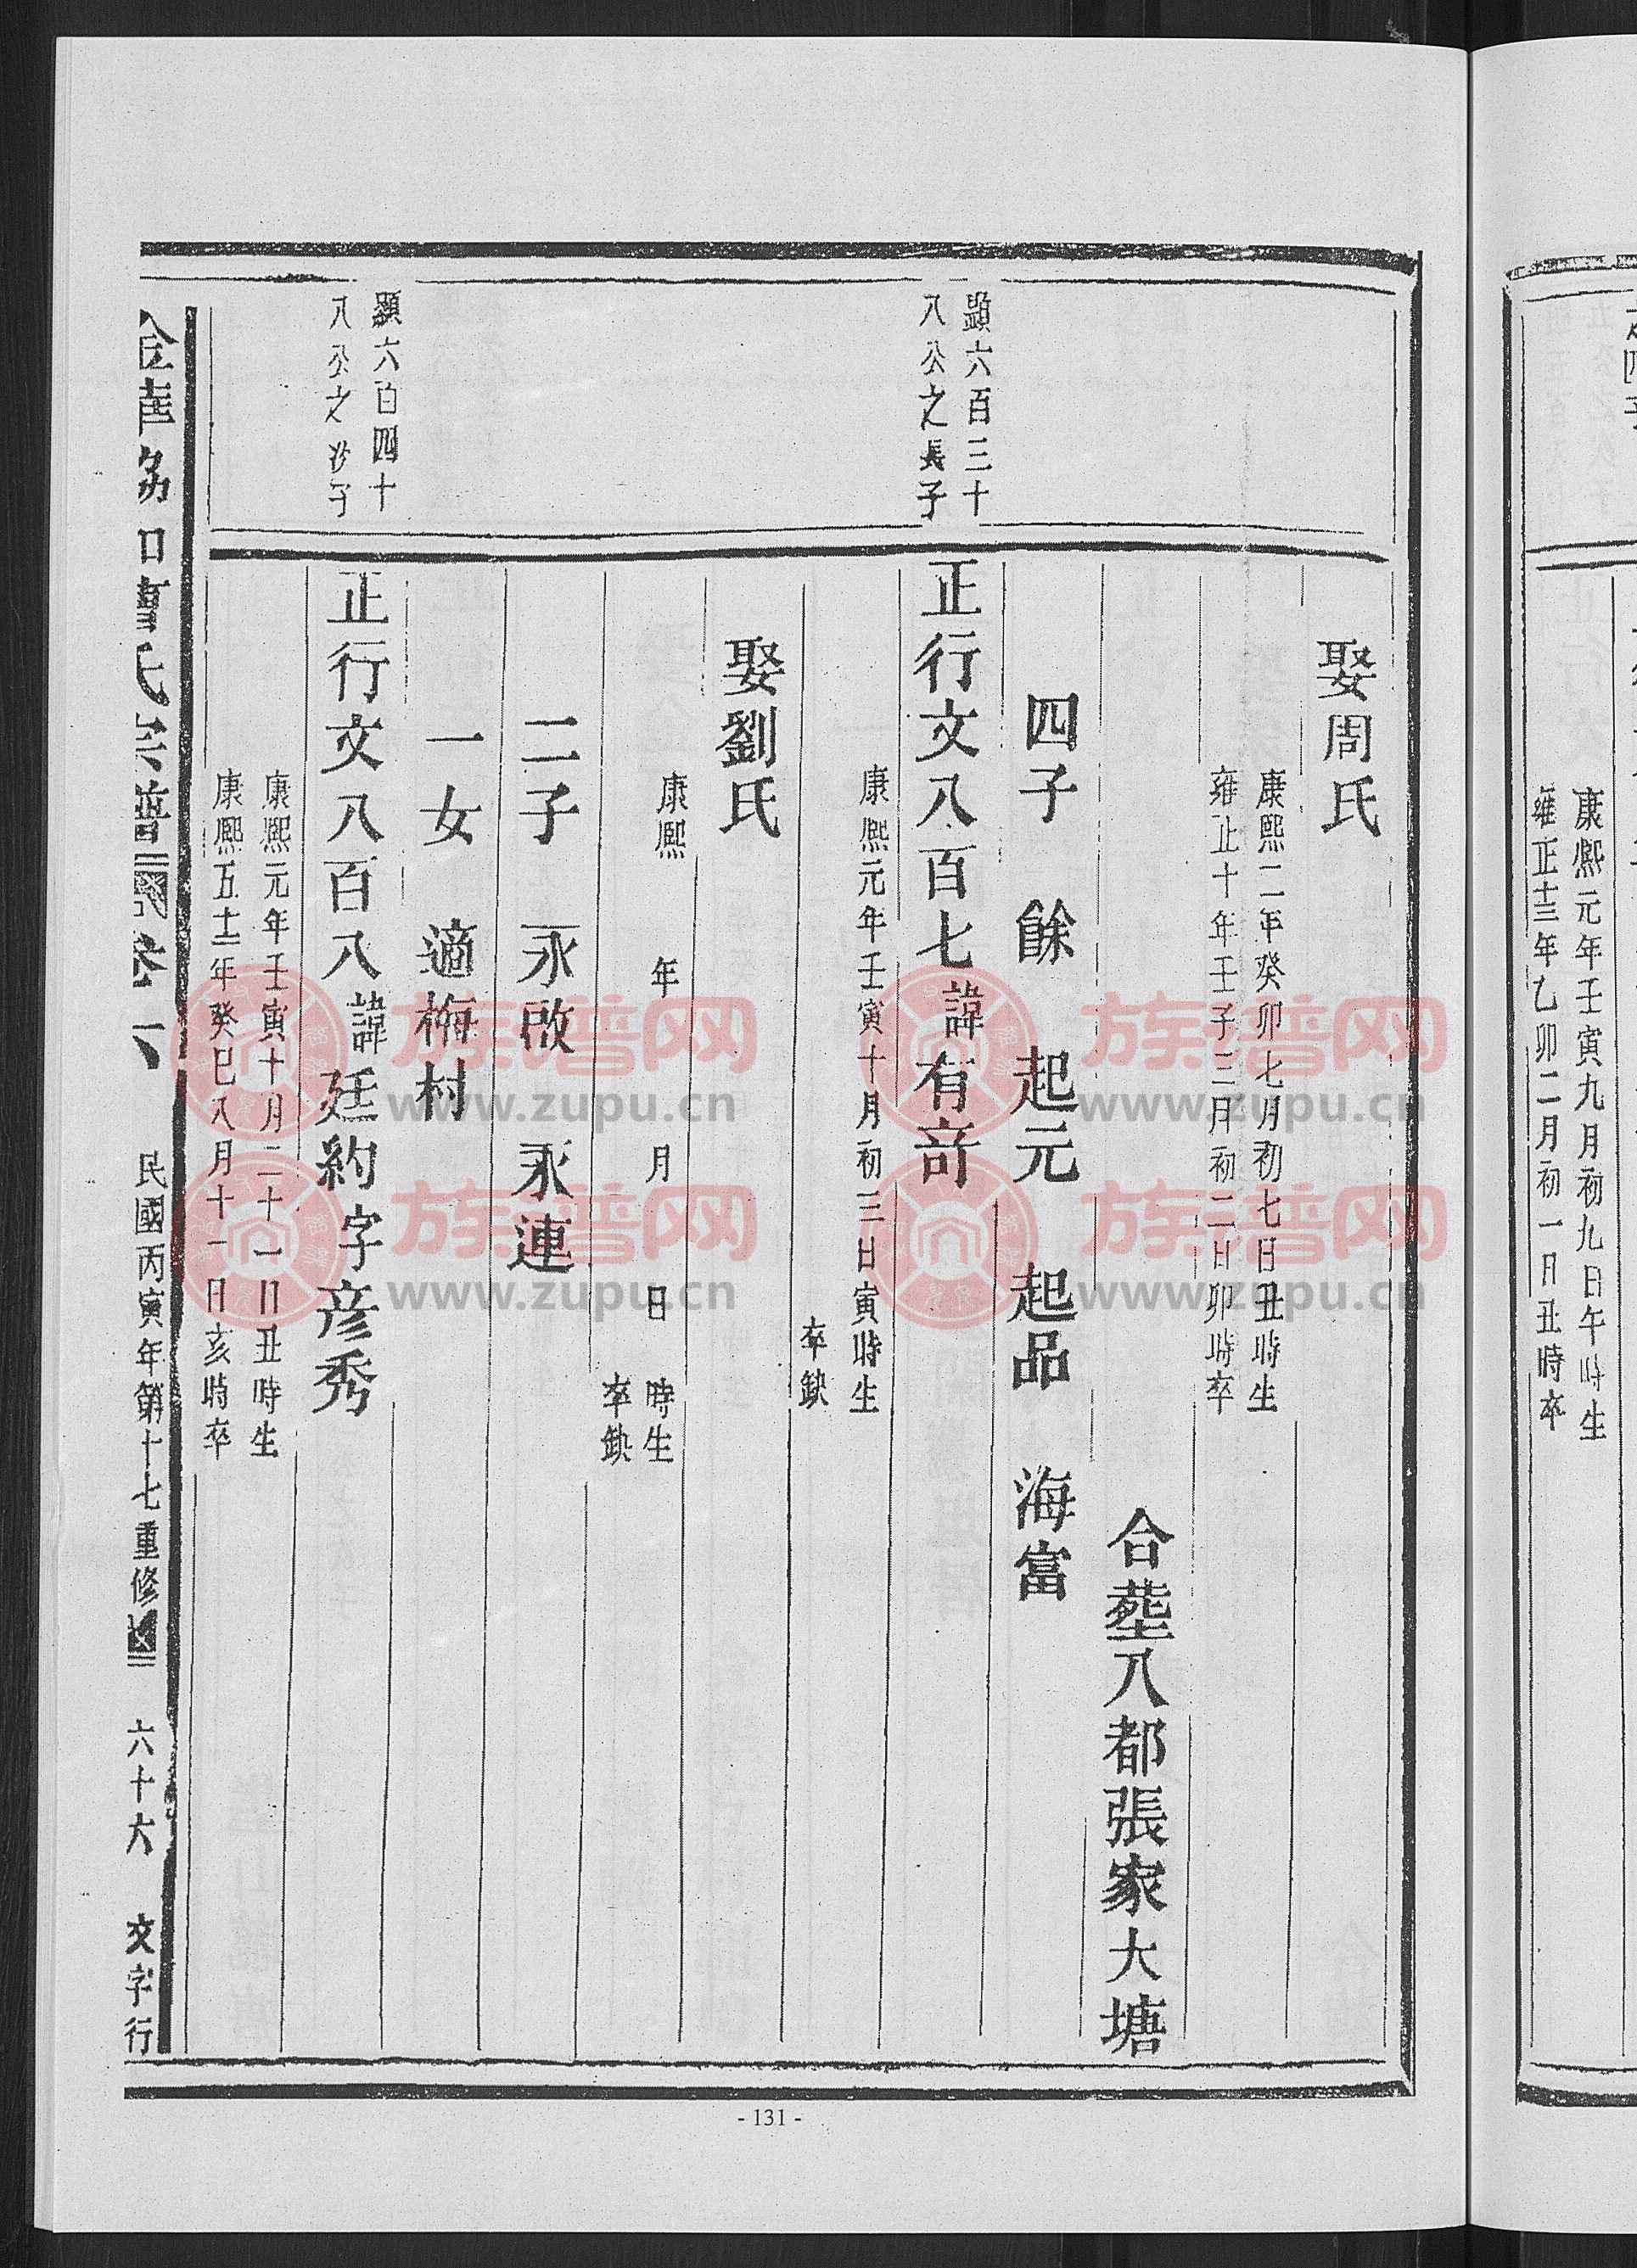 娶周氏
康熙二年癸卯七月初七日丑時生
雍正十年壬子三月初二日卯時卒
合塟八都張家大塘
四子 餘 起元 起品 海富
顕六百三十
八公之長子
正行文八百七諱有奇
康熙元年壬寅十月初三日寅時生
卒缺
娶劉氏
康熙 年 月 日 時生
卒缺
二子 永啟 永連
一女 適梅村
顕六百四十
八公之次子
正行文八百八諱廷約字彦秀
康熙元年壬寅十月二十一日丑時生
康熙五十二年癸巳八月十一日亥時卒
曹氏宗譜 卷六 民國丙寅年第十七重修 六十六 文字行
- 131 -
康熙元年壬寅九月初九日午時生
雍正十三年乙卯二月初一日丑時卒
族谱网
www.zupu.cn
族谱网
www.zupu.cn
族谱网
www.zupu.cn
族谱网
www.zupu.cn